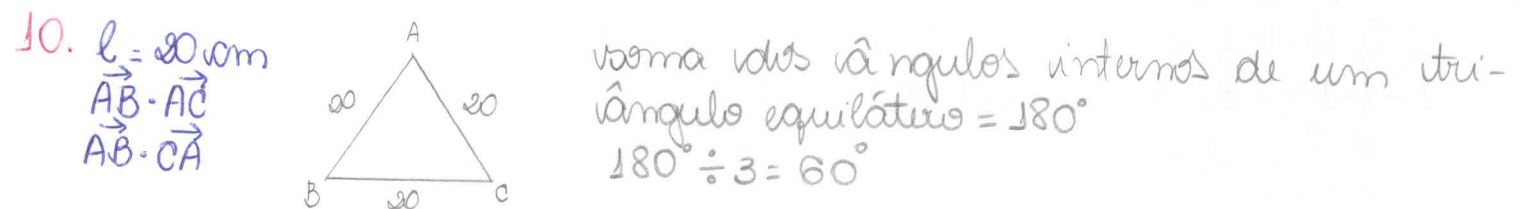 10. l = 20 cm
AB⃗ · AC⃗
AB⃗ · CA⃗
A
20 20
B 20 C
soma dos ângulos internos de um tri-
ângulo equilátero = 180°
180° ÷ 3 = 60°